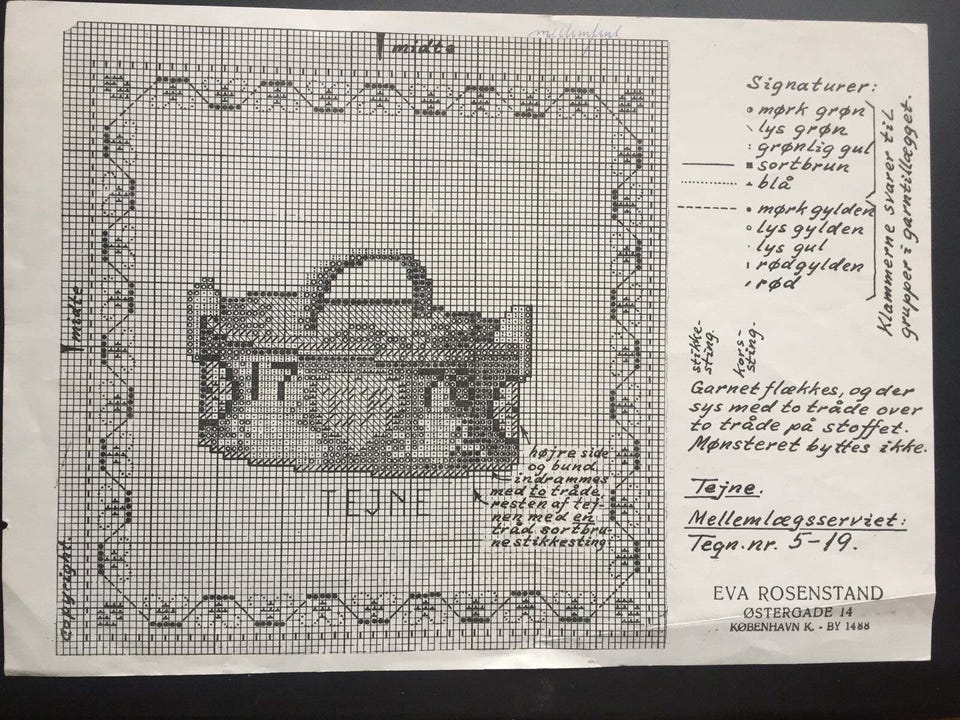 mellemfint
midte
Signaturer:
mørk grøn
lys grøn
grønlig gul
sortbrun
blå
mørk gylden
lys gylden
lys gul
rødgylden
rød
Klammerne svarer til
grupper i garntillægget.
midte
stikke-
sting.
kors-
sting.
Garnet flækkes, og der
sys med to tråde over
to tråde på stoffet.
Mønsteret byttes ikke.
højre side
og bund
indrammes
med to tråde,
resten af tej-
nen med en
tråd sortbru-
ne stikkesting
TEJNE
Tejne.
Mellemlægsserviet:
Tegn. nr. 5-19.
copyright.
EVA ROSENSTAND
ØSTERGADE 14
KØBENHAVN K. - BY 1488